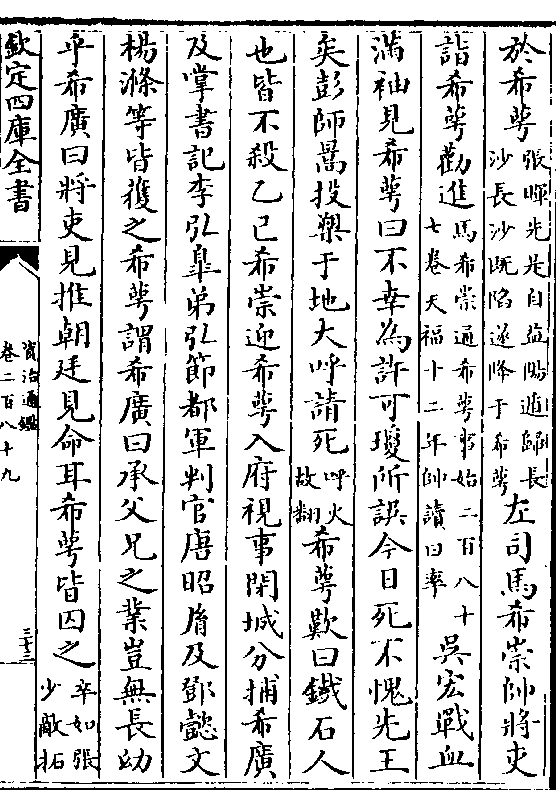 於希萼張暉先是自益陽遁歸長沙長沙既陷遂降于希萼左司馬希崇帥將吏
詣希萼勸進馬希崇通希萼事始二百八十七卷天福十二年帥讀曰率吳宏戰血
滿袖見希萼曰不幸為許可瓊所誤今日死不愧先王
矣彭師暠投槊于地大呼請死呼火故翻希萼歎曰鐵石人
也皆不殺乙巳希崇迎希萼入府視事閉城分捕希廣
及掌書記李弘臯弟弘節都軍判官唐昭胤及鄧懿文
楊滌等皆獲之希萼謂希廣曰承父兄之業豈無長幼
乎希廣曰將吏見推朝廷見命耳希萼皆囚之卒如張少敵拓
欽定四庫全書
資治通鑑
卷二百八十九
三十三